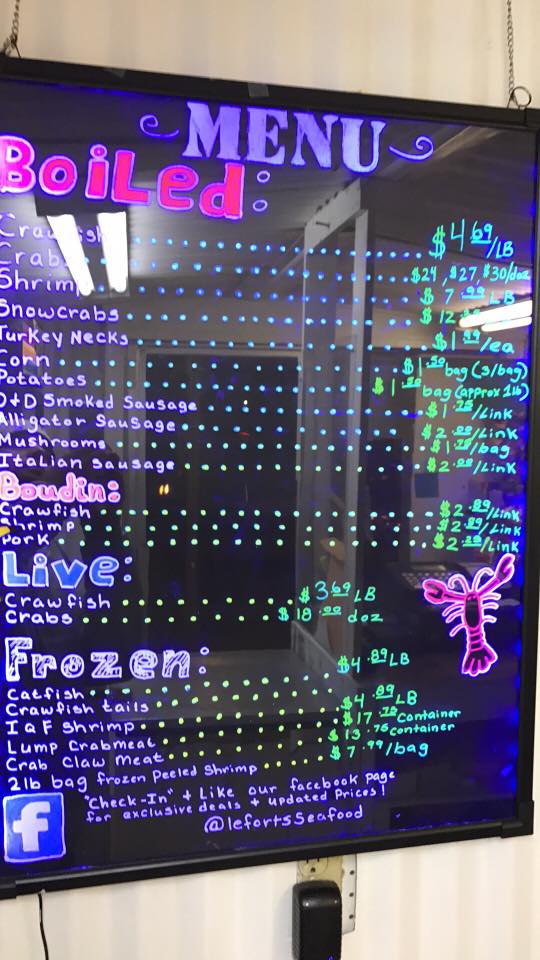 MENU
Boiled:
Crawfish $4.69/LB
Crabs $24, $27, $30/doz
Shrimp $7.99 LB
Snowcrabs $12
Turkey Necks $1.99/ea
Corn $1.50 bag (3/bag)
Potatoes $1.50 bag (approx 1lb)
D+D Smoked Sausage $1.75/Link
Alligator Sausage $2.00/Link
Mushrooms $1.75/bag
Italian Sausage $2.00/Link
Boudin:
Crawfish $2.89/Link
Shrimp $2.89/Link
Pork $2.25/Link
Live:
Crawfish $3.69 LB
Crabs $18.00 doz
Frozen:
Catfish $4.89 LB
Crawfish tails
IQF Shrimp $4.89 LB
Lump Crabmeat $17.75 container
Crab Claw Meat $13.75 container
2lb bag frozen Peeled Shrimp $7.99/bag
"Check-In" + Like our facebook page
for exclusive deals + updated Prices!
f
@lefortsSeafood